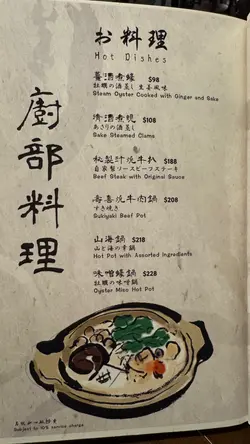 お料理
Hot Dishes
廚部料理
薑酒煮蠔 $98
牡蠣の酒蒸し 生姜風味
Steam Oyster Cooked with Ginger and Sake
清酒煮蜆 $108
あさりの酒蒸し
Sake Steamed Clams
秘製汁燒牛扒 $188
自家製ソースビーフステーキ
Beef Steak with Original Sauce
壽喜燒牛肉鍋 $208
すき焼き
Sukiyaki Beef Pot
山海鍋 $218
山と海の幸鍋
Hot Pot with Assorted Ingredients
味噌蠔鍋 $228
牡蠣の味噌鍋
Oyster Miso Hot Pot
Subject to 10% service charge